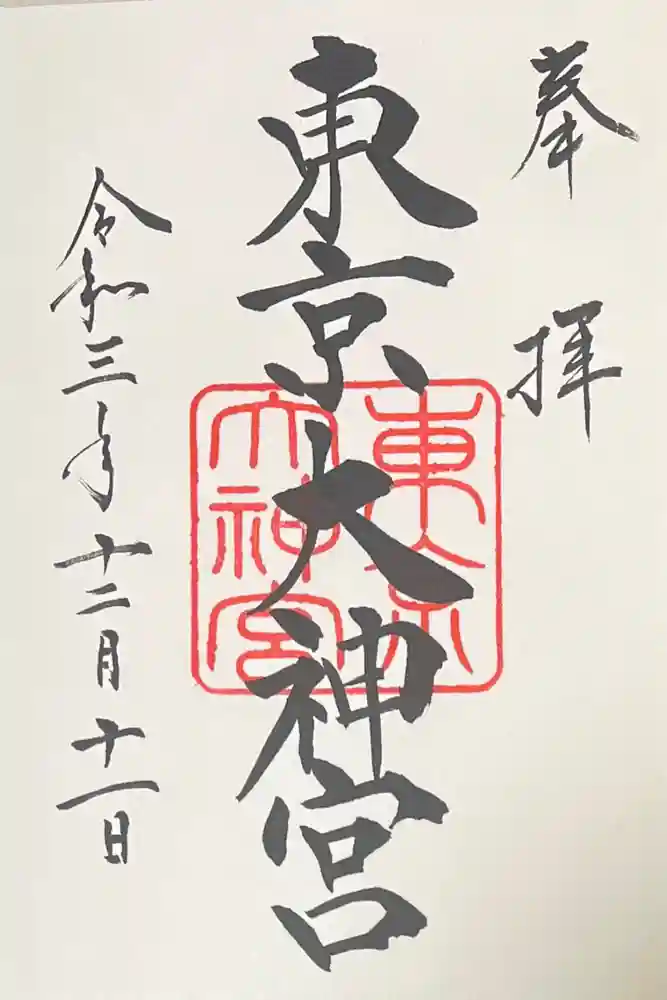 奉拝
東京大神宮
東京
大神宮
令和三年十二月十一日